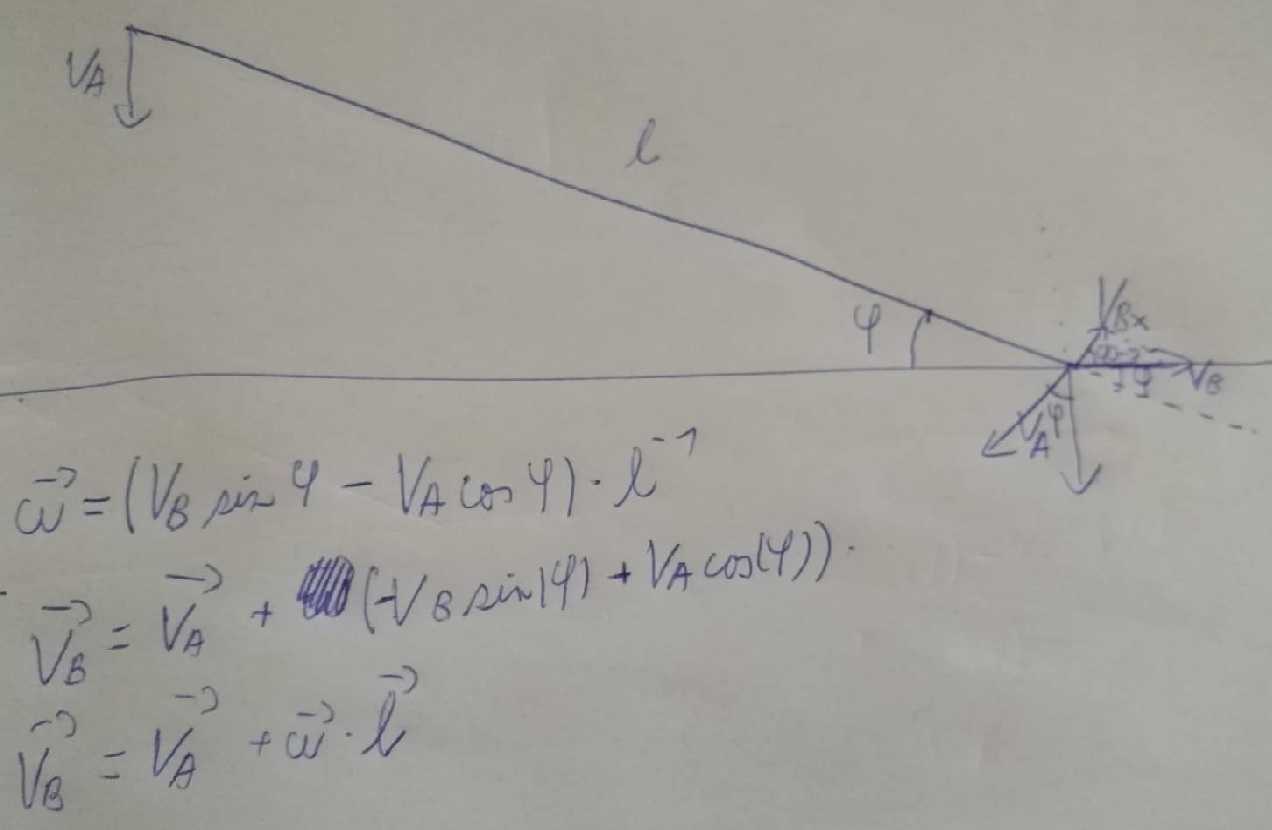 V_A
l
φ
V_Bx
V_B
φ
V_A
ω⃗ = (V_B sin φ - V_A cos φ) · l⁻¹
V⃗_B = V⃗_A + (-V_B sin(φ) + V_A cos(φ)) ·
V⃗_B = V⃗_A + ω⃗ · l⃗